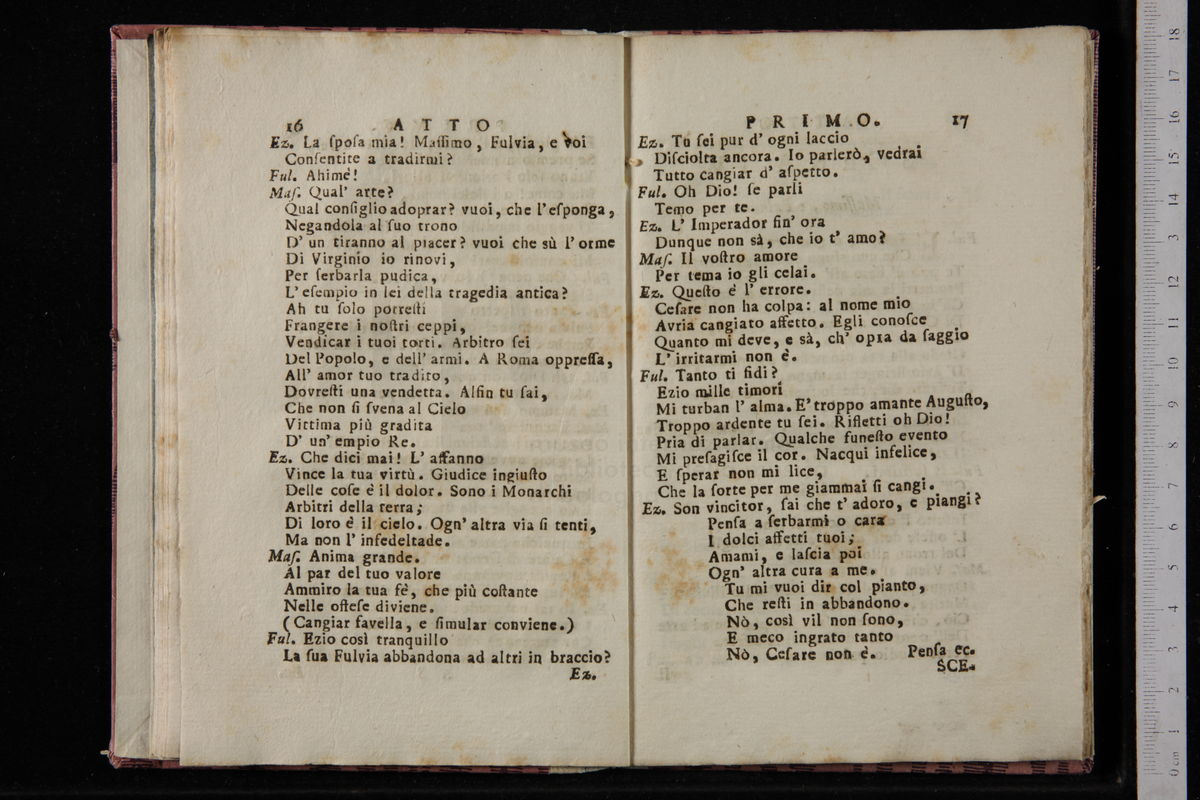 16 ATTO
Ez. La ſpoſa mia! Maſſimo, Fulvia, e voi
Conſentite a tradirmi?
Ful. Ahimè!
Maſ. Qual' arte?
Qual conſiglio adoprar? vuoi, che l'eſponga,
Negandola al ſuo trono
D' un tiranno al piacer? vuoi che sù l'orme
Di Virginio io rinovi,
Per ſerbarla pudica,
L'eſempio in lei della tragedia antica?
Ah tu ſolo potreſti
Frangere i noſtri ceppi,
Vendicar i tuoi torti. Arbitro ſei
Del Popolo, e dell'armi. A Roma oppreſſa,
All' amor tuo tradito,
Dovreſti una vendetta. Alfin tu ſai,
Che non ſi ſvena al Cielo
Vittima più gradita
D' un' empio Re.
Ez. Che dici mai! L' affanno
Vince la tua virtù. Giudice ingiuſto
Delle coſe è il dolor. Sono i Monarchi
Arbitri della terra;
Di loro è il cielo. Ogn' altra via ſi tenti,
Ma non l' infedeltade.
Maſ. Anima grande.
Al par del tuo valore
Ammiro la tua fè, che più coſtante
Nelle offeſe diviene.
(Cangiar favella, e ſimular conviene.)
Ful. Ezio così tranquillo
La ſua Fulvia abbandona ad altri in braccio?
Ez.
PRIMO. 17
Ez. Tu ſei pur d' ogni laccio
Diſciolta ancora. Io parlerò, vedrai
Tutto cangiar d' aſpetto.
Ful. Oh Dio! ſe parli
Temo per te.
Ez. L' Imperador fin' ora
Dunque non sà, che io t' amo?
Maſ. Il voſtro amore
Per tema io gli celai.
Ez. Queſto è l' errore.
Ceſare non ha colpa: al nome mio
Avria cangiato affetto. Egli conoſce
Quanto mi deve, e sà, ch' opra da ſaggio
L' irritarmi non è.
Ful. Tanto ti fidi?
Ezio mille timori
Mi turban l' alma. E' troppo amante Auguſto,
Troppo ardente tu ſei. Rifletti oh Dio!
Pria di parlar. Qualche funeſto evento
Mi preſagiſce il cor. Nacqui infelice,
E ſperar non mi lice,
Che la ſorte per me giammai ſi cangi.
Ez. Son vincitor, ſai che t' adoro, e piangi?
Penſa a ſerbarmi o cara
I dolci affetti tuoi;
Amami, e laſcia poi
Ogn' altra cura a me.
Tu mi vuoi dir col pianto,
Che reſti in abbandono.
Nò, così vil non ſono,
E meco ingrato tanto
Nò, Ceſare non è. Penſa ec.
SCE-